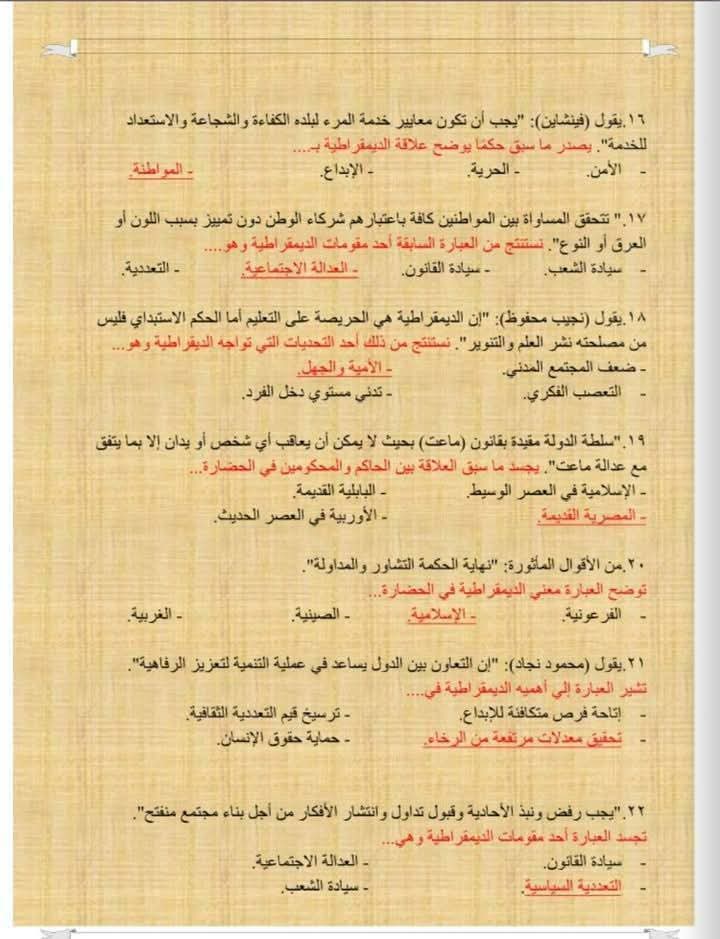 ١٦.يقول (فينشاين): "يجب أن تكون معايير خدمة المرء لبلده الكفاءة والشجاعة والاستعداد
للخدمة". يصدر ما سبق حكمًا يوضح علاقة الديمقراطية بـ....
- الأمن. - الحرية. - الإبداع. - المواطنة.
١٧." تتحقق المساواة بين المواطنين كافة باعتبارهم شركاء الوطن دون تمييز بسبب اللون أو
العرق أو النوع". نستنتج من العبارة السابقة أحد مقومات الديمقراطية وهو....
- سيادة الشعب. - سيادة القانون. - العدالة الاجتماعية. - التعددية.
١٨.يقول (نجيب محفوظ): "إن الديمقراطية هي الحريصة على التعليم أما الحكم الاستبداي فليس
من مصلحته نشر العلم والتنوير". نستنتج من ذلك أحد التحديات التي تواجه الديقراطية وهو...
- ضعف المجتمع المدني. - الأمية والجهل.
- التعصب الفكري. - تدني مستوي دخل الفرد.
١٩."سلطة الدولة مقيدة بقانون (ماعت) بحيث لا يمكن أن يعاقب أي شخص أو يدان إلا بما يتفق
مع عدالة ماعت". يجسد ما سبق العلاقة بين الحاكم والمحكومين في الحضارة...
- الإسلامية في العصر الوسيط. - البابلية القديمة.
- المصرية القديمة. - الأوربية في العصر الحديث.
٢٠.من الأقوال المأثورة: "نهاية الحكمة التشاور والمداولة".
توضح العبارة معني الديمقراطية في الحضارة...
- الفرعونية. - الإسلامية. - الصينية. - الغربية.
٢١.يقول (محمود نجاد): "إن التعاون بين الدول يساعد في عملية التنمية لتعزيز الرفاهية".
تشير العبارة إلي أهميه الديمقراطية في....
- إتاحة فرص متكافئة للإبداع. - ترسيخ قيم التعددية الثقافية.
- تحقيق معدلات مرتفعة من الرخاء. - حماية حقوق الإنسان.
٢٢."يجب رفض ونبذ الأحادية وقبول تداول وانتشار الأفكار من أجل بناء مجتمع منفتح".
تجسد العبارة أحد مقومات الديمقراطية وهي...
- سيادة القانون. - العدالة الاجتماعية.
- التعددية السياسية. - سيادة الشعب.